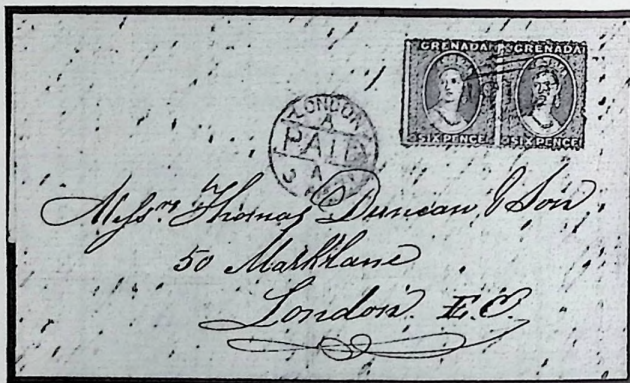 GRENADA GRENADA
SIX PENCE SIX PENCE
LONDON
A
PAID
A
3
Messrs Thomas Duncan & Son
50 Mark Lane
London. E.C.